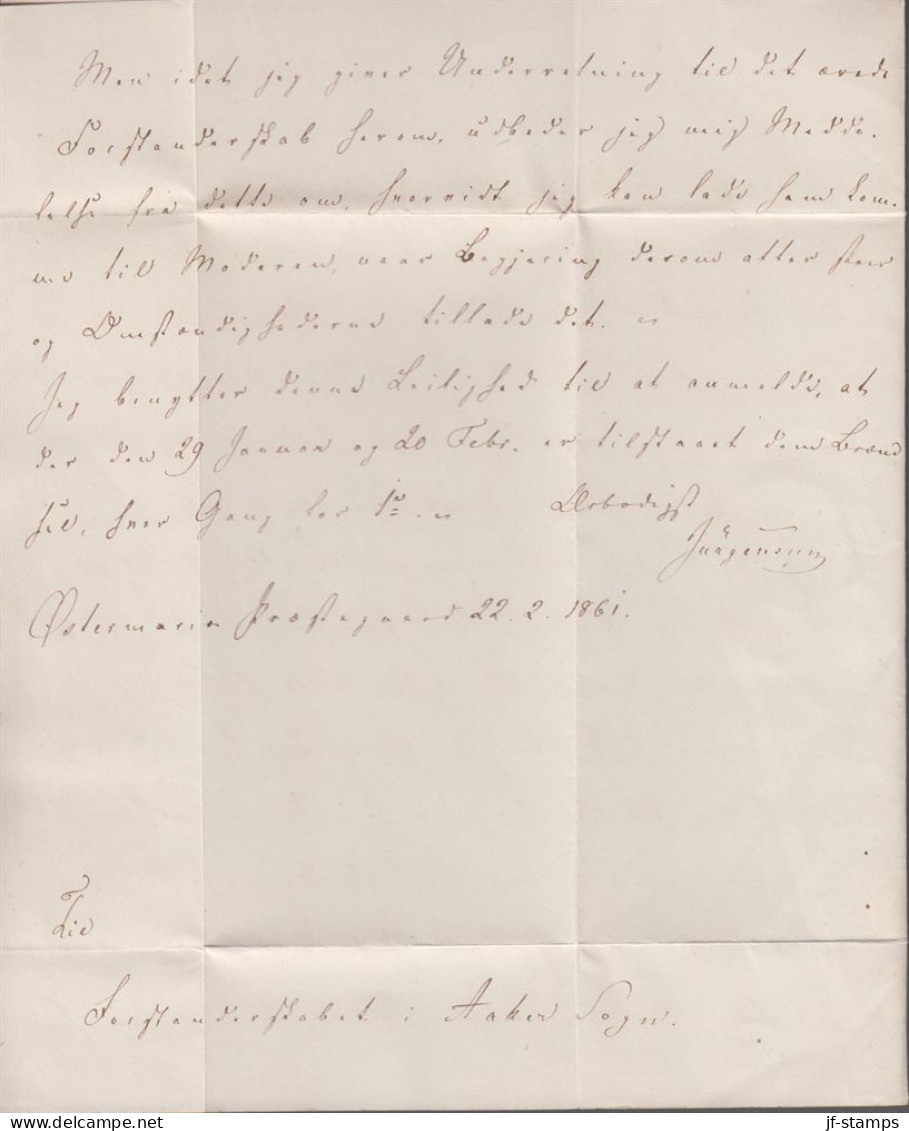 Men idet jeg giver Underretning til det ærede
Forstanderskab herom, udbeder jeg mig Medde-
lelse fra dette om, hvorvidt jeg kan lade ham kom-
me til Moderen, naar Begjæring derom atter skeer
og Omstændighederne tillade det.
Jeg benytter denne Leilighed til at anmelde, at
der den 29 Januar og 20 Febr. er tilstaaet dem Brænd
sel, hver Gang for
Ærbødigst
Jürgensen
Østermarie Præstegaard 22. 2. 1861.
Til
Forstanderskabet i Aaker Sogn.
jf-stamps